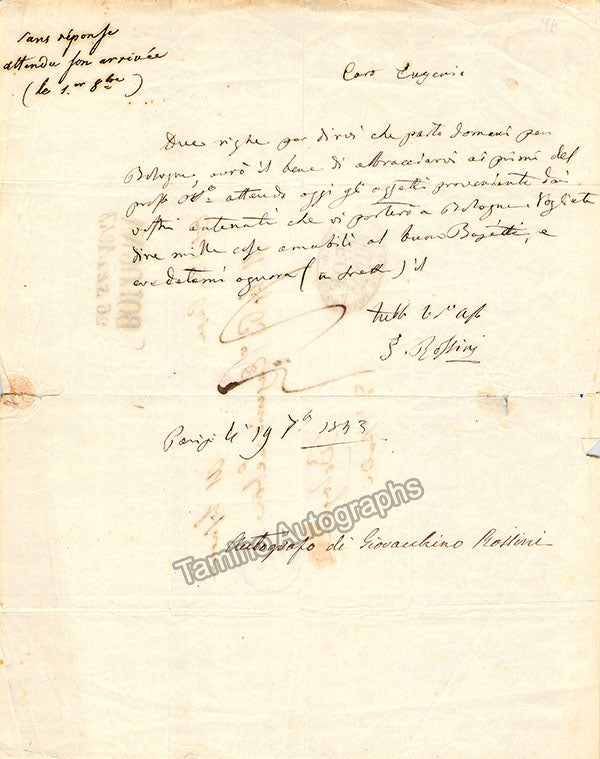 sans réponse
attendu son arrivée
(le 1.er 8bre)
Caro Eugenio
Due righe per dirvi che parto domani per
Bologna, avrò il bene di abbracciarvi ai primi del
pross. attendo oggi gli oggetti proveniente dai
vostri antenati che vi porterò a Bologna. Vogliate
dire mille cose amabili al buon e
credetemi ognora (in fretta) il
tutto
G. Rossini
Parigi li 19 7b 1843
26 SET. 1843
BOLOGNA
Autografo di Giovacchino Rossini
Tamino Autographs